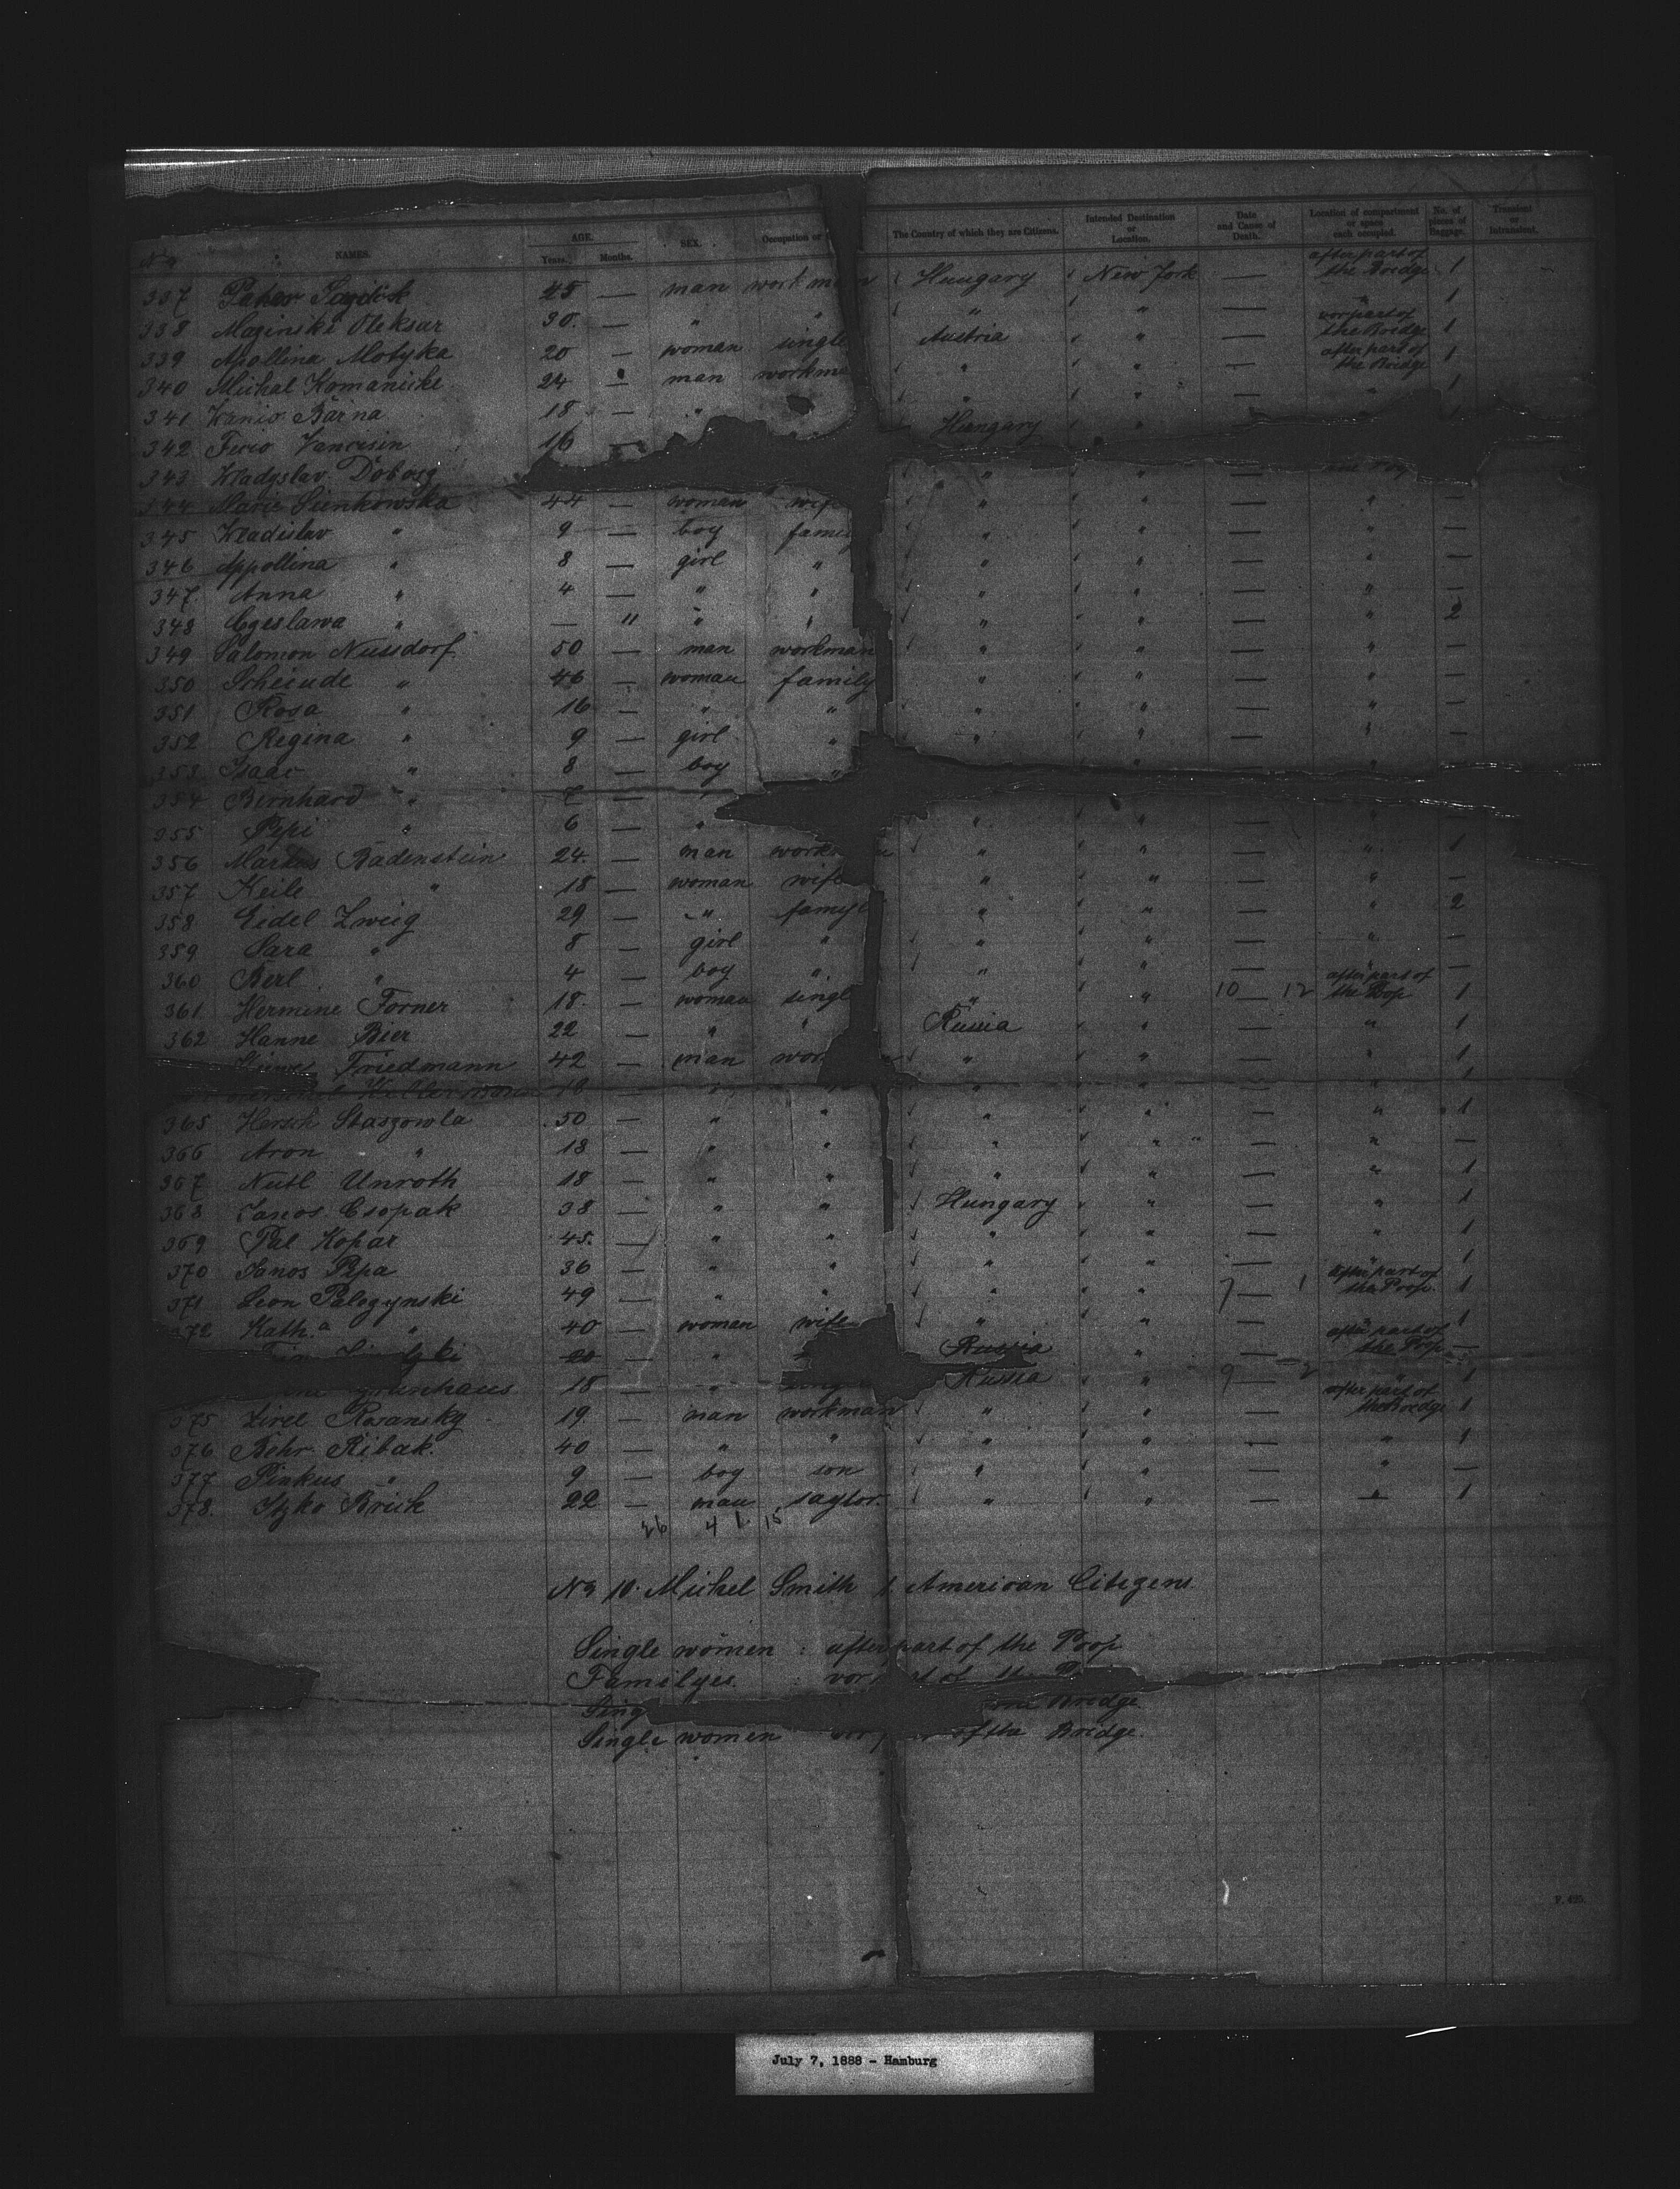 No NAMES. AGE. Years. Months. SEX. Occupation or The Country of which they are Citizens. Intended Destination or Location. Date and Cause of Death. Location of compartment or space each occupied. No. of pieces of Baggage. Transient or Intransient.
337 45 — man workman Hungary New York — after part of the Bridge 1
338 Mazinski Oleksar 30. — " " " " 1
339 Apollina Motyka 20 — woman single Austria " — vorpart of the Bridge 1
340 Michal Komanicke 24 — man workma " " — after part of the Bridge 1
341 Wanio Barna 18 — " " " — " 1
342 Ferio Vancisin 16 — Hungary "
343 Wladyslav " " —
344 Marie Sienkowska 44 — woman wife " " — " —
345 Wladislav " 9 — boy famil " " — " —
346 Appollina " 8 — girl " " " — " —
347. Anna " 4 — " " " " — " —
348 Czeslawa " — 11 " " " " — " 2
349 Salomon Nussdorf. 50 — man workman " " — " —
350 Scheinde " 46 — woman family " " — " —
351 Rosa " 16 — " " " " — " —
352 Regina " 9 — girl " " " — " —
353 Isaac " 8 — boy " "
354 Bernhard " 7 — "
355 Pepi " 6 — " " " — " —
356 Markus Badenstein 24. — man work " " — " 1
357 Keile " 18 — woman wife " " — " —
358 Eidel Zweig 29 — " famyl " " — " 2
359 Sara " 8 — girl " " " — " —
360 Berl " 4 — boy " " " — " —
361 Hermine Forner 18. — woman singl " " 10 — 12 after part of the Poop 1
362 Hanne Bier 22 — " " Russia " — " 1
Friedmann 42 — man wor " " — " 1
Kellermann 18 — " " " — " 1
365 Hersch Staszowla 50 — " " " " — " 1
366 Aron " 18 — " " " " — " —
367 Nutl Unroth 18 — " " " " — " 1
368 Janos Csopak 38 — " " Hungary " — " 1
369 Pal Kopar 45. — " " " " — " 1
370 Janos Pepa 36 — " " " " — " 1
371 Leon Palozynski 49 — " " " " 7 — 1 after part of the Poop. 1
372 Kath.a " 40 — woman wife " " — " 1
20 — " Russia " — after part of the Poop —
Grünhaus 18 — " Russia " 9 — 2 " 1
375 Zirel Rosansky 19. — man workman " " — after part of the Bridge 1
376 Behr Ribak. 40 — " " " " — " 1
377 Pinkus " 9 — boy son " " — " —
378. Itzko Brick 22 — man saylor. " " — " 1
26 4 1 15
No 10. Michel Smith 1. American Citizens
Single women : after part of the Poop
Familyes. : vor
Sing Bridge
Single women of the Bridge.
F. 425.
July 7, 1888 - Hamburg